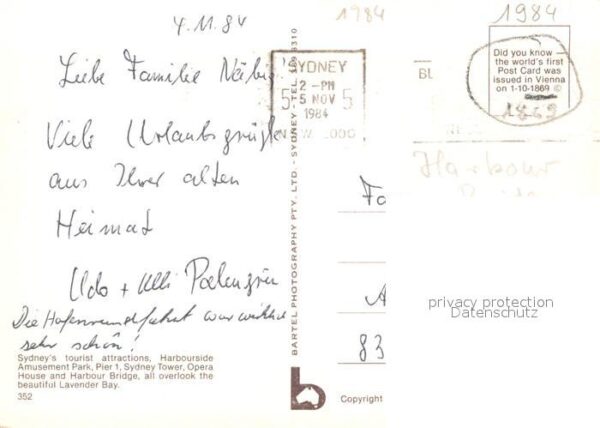 4.11.84
Liebe Familie
Viele Urlaubsgrüße
aus Ihrer alten
Heimat
Udo + Ulli
Die Hafenrundfahrt war wirklich
sehr schön!
Sydney's tourist attractions, Harbourside
Amusement Park, Pier 1, Sydney Tower, Opera
House and Harbour Bridge, all overlook the
beautiful Lavender Bay.
352
BARTEL PHOTOGRAPHY PTY. LTD. - SYDNEY - TEL.
b
Copyright
1984
SYDNEY
2 - PM
5 5 NOV 5
1984
1984
Did you know
the world's first
Post Card was
issued in Vienna
on 1-10-1869 ©
1869
Harbour
Fa
A
83
privacy protection
Datenschutz